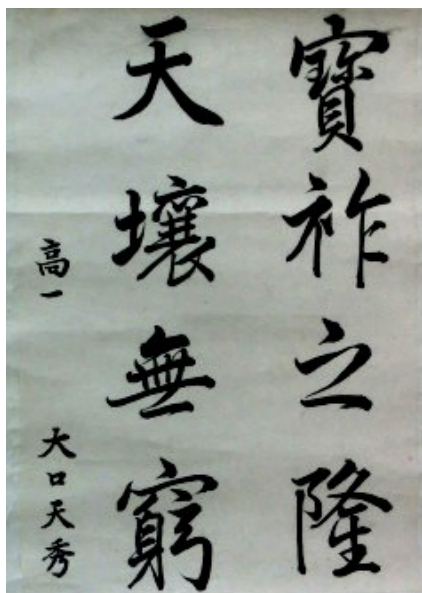 寶祚之隆
天壤無窮
高一 大口天秀